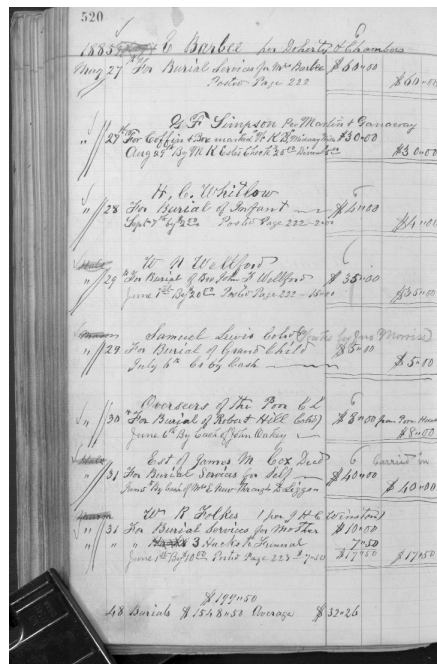 520
1885 E Barbee per Doherty & Chambers
Aug 27 For Burial Services for Mrs Barbee $60.00
Posted Page 222 $60.00
G F Simpson Per Martin & Ganaway
" 27 For Coffin & Box marked $30.00
Aug 29th By K Check 25.00 $30.00
H. C. Whitlow
" 28 For Burial of Infant $4.00
Sept 7th By 2.00 Posted Page 222 - 2.00 $4.00
W N Wellford
" 29 For Burial of Bro John Wellford $35.00
June 1st By 20.00 Posted Page 222 - 15.00 $35.00
Samuel Lewis Cold (Jno Morris)
" 29 For Burial of Grand Child $5.00
July 6th Cr by Cash $5.00
Overseers of the Poor
" 30 For Burial of Robert Hill Cold $8.00 from Poor House
June 6th By Cash of John Oakey $8.00
Est of James M. Cox Decd Carried on
" 31 For Burial Services for Self $40.00
June 5 By Cash of Mrs E New through Liggon $40.00
W R Folkes (per H C Winston)
" 31 For Burial Services for Mother $10.00
" " " 3 Hacks to Funeral 7.50
June 1st By 10.00 Posted Page 223 - 7.50 $17.50 $17.50
$199.50
48 Burials $1548.50 Average $32.26